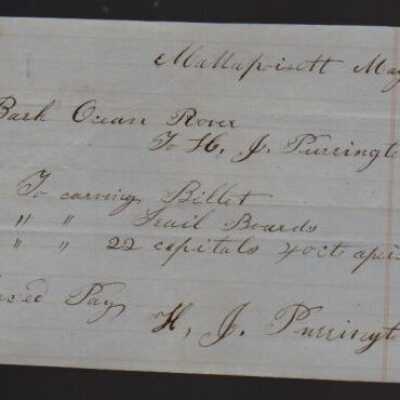 Mattapoisett May
Bark Ocean Rover
To H. J. Purringto
To carving Billet
" " Trail Boards
" " 22 capitals 40cts apie
Pay
H, J. Purringto